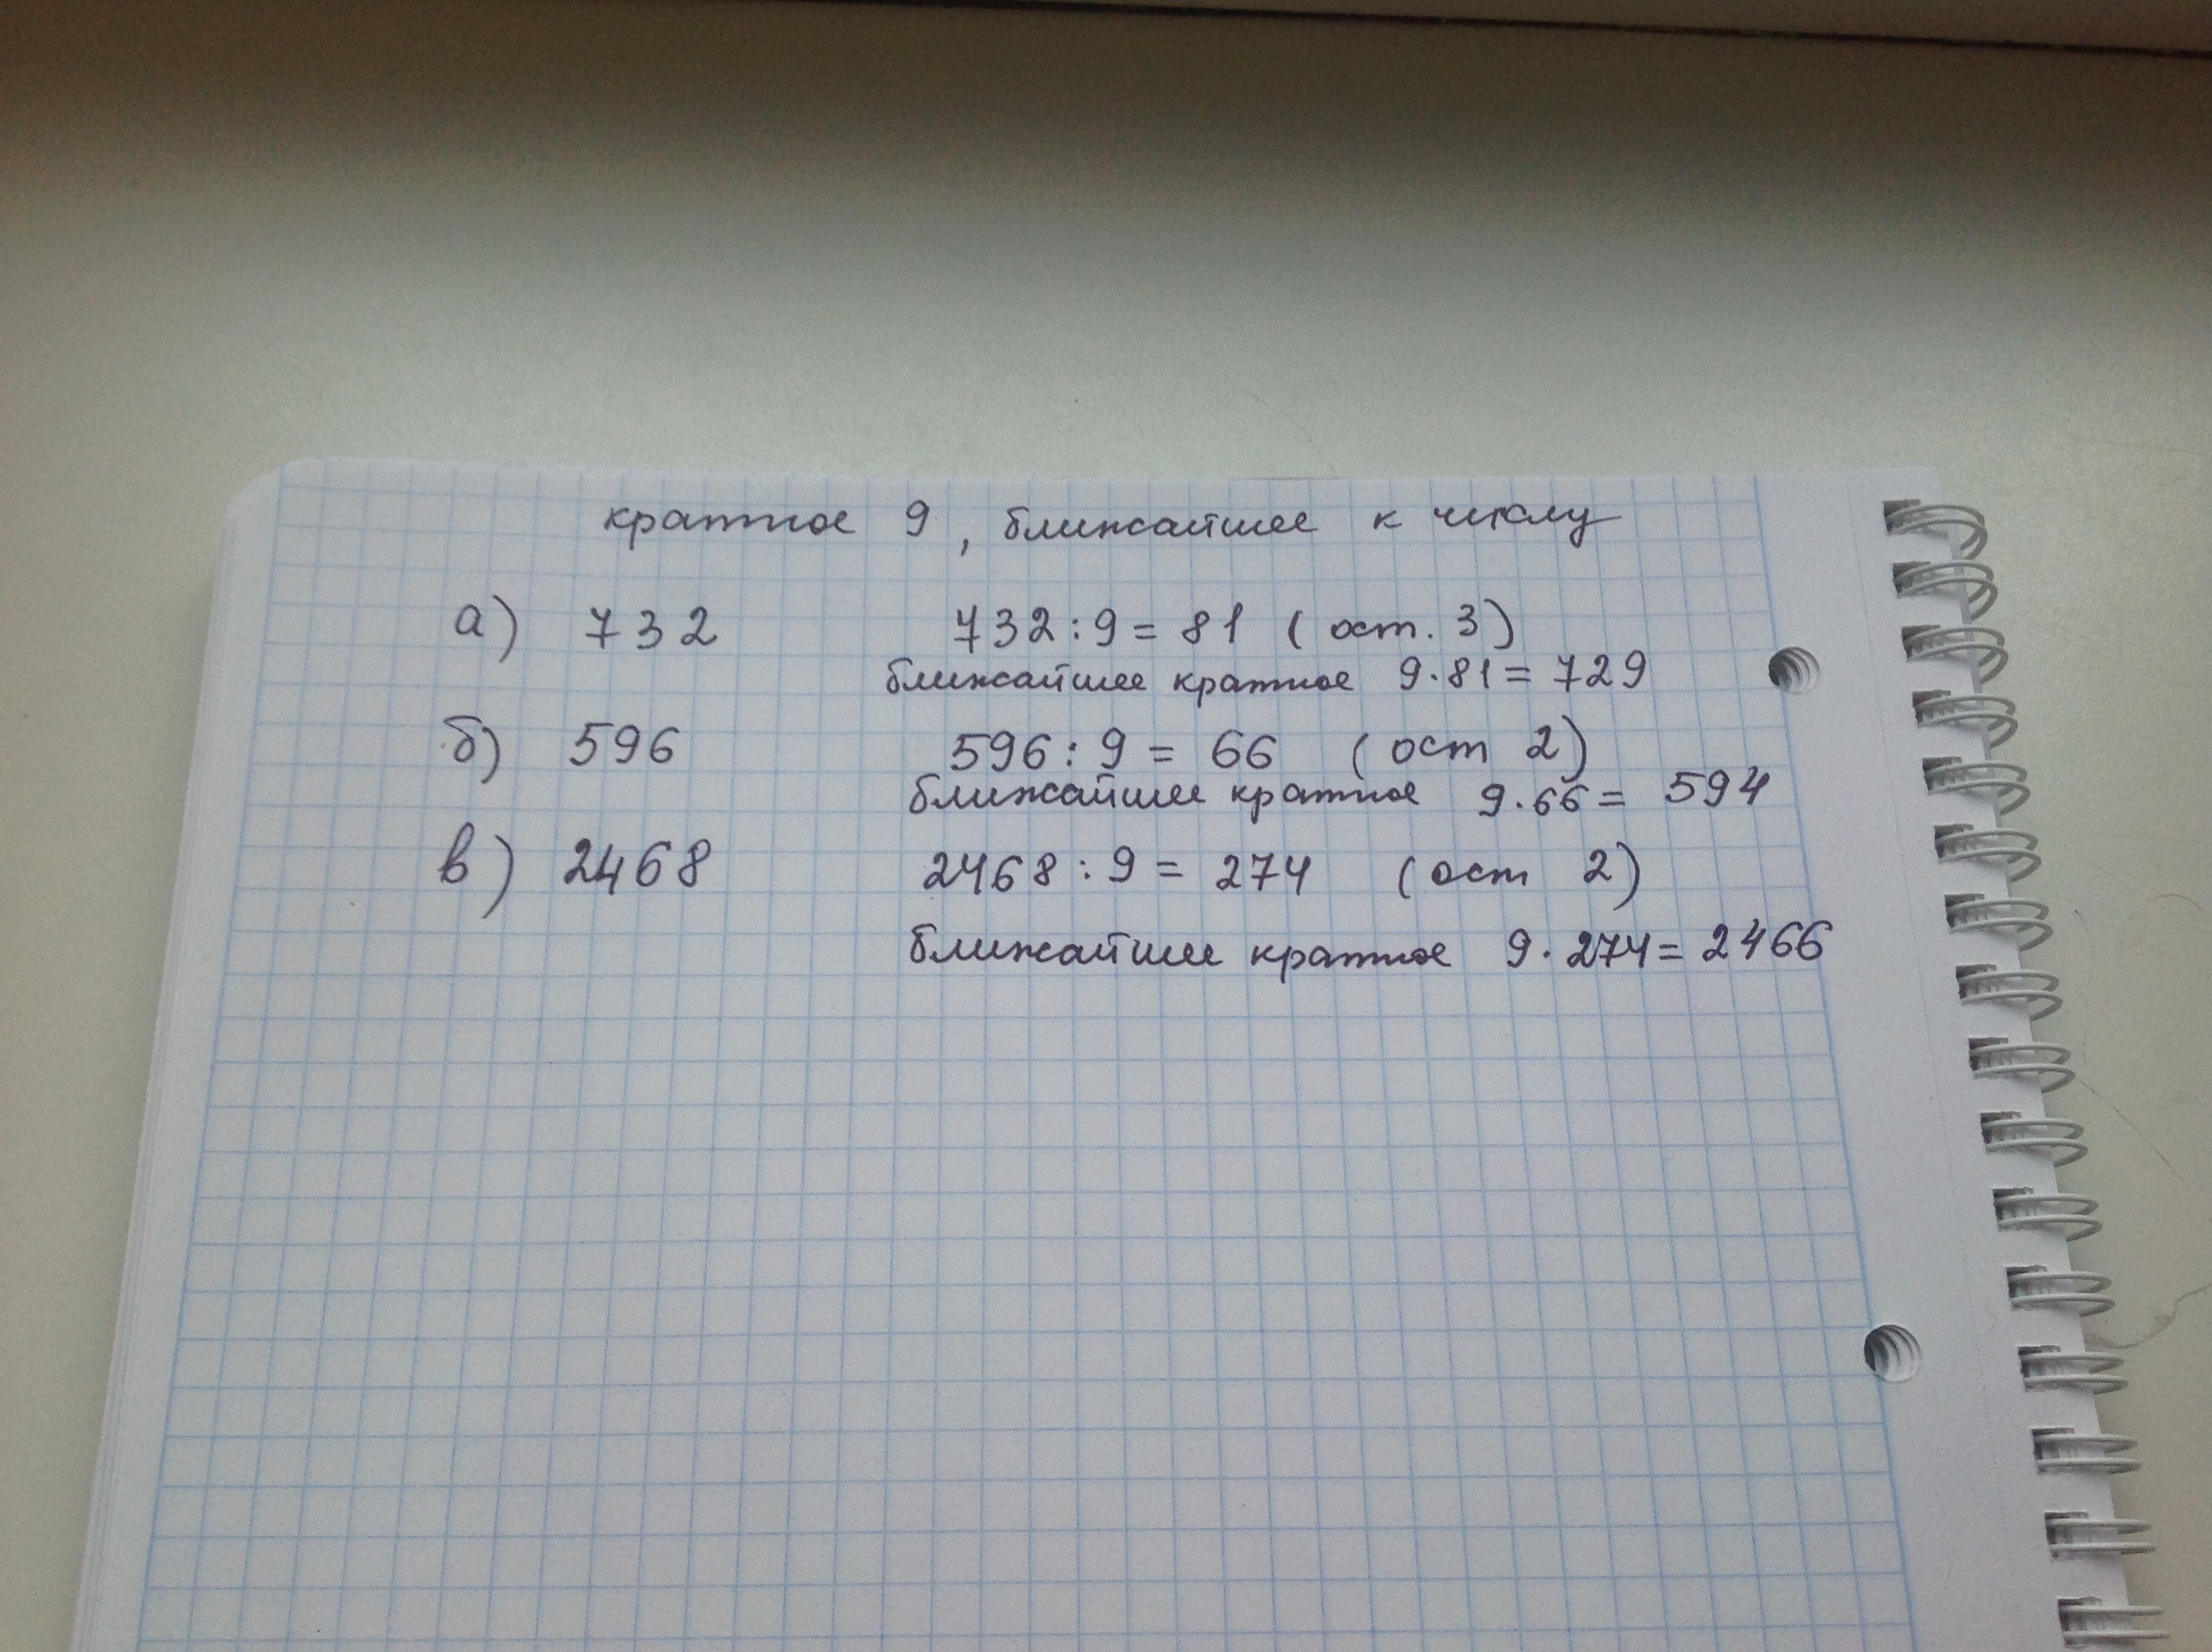 кратное 9, ближайшее к числу
а) 732 732 : 9 = 81 (ост. 3)
ближайшее кратное 9 · 81 = 729
б) 596 596 : 9 = 66 (ост 2)
ближайшее кратное 9 · 66 = 594
в) 2468 2468 : 9 = 274 (ост 2)
ближайшее кратное 9 · 274 = 2466